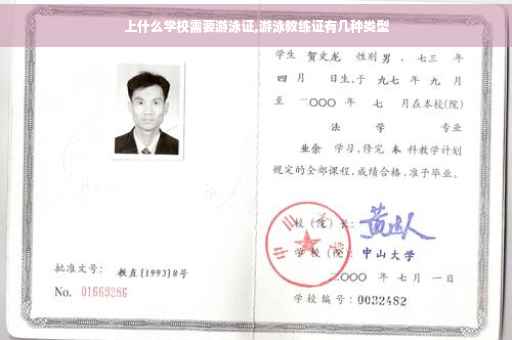 上什么学校需要游泳证,游泳教练证有几种类型
学生 贺文龙 性别 男 、七三 年
四 月 日生,于 九七 年 九 月
至 二〇〇〇 年 七 月在本校(院)
法 学 专业
业余 学习,修完 本 科教学计划
规定的全部课程,成绩合格,准予毕业。
校(院)长:
学校(院): 中山大学
二〇〇〇 年 七 月 一 日
学校编号: 0032482
批准文号: 教直[1993]8号
No. 01669286